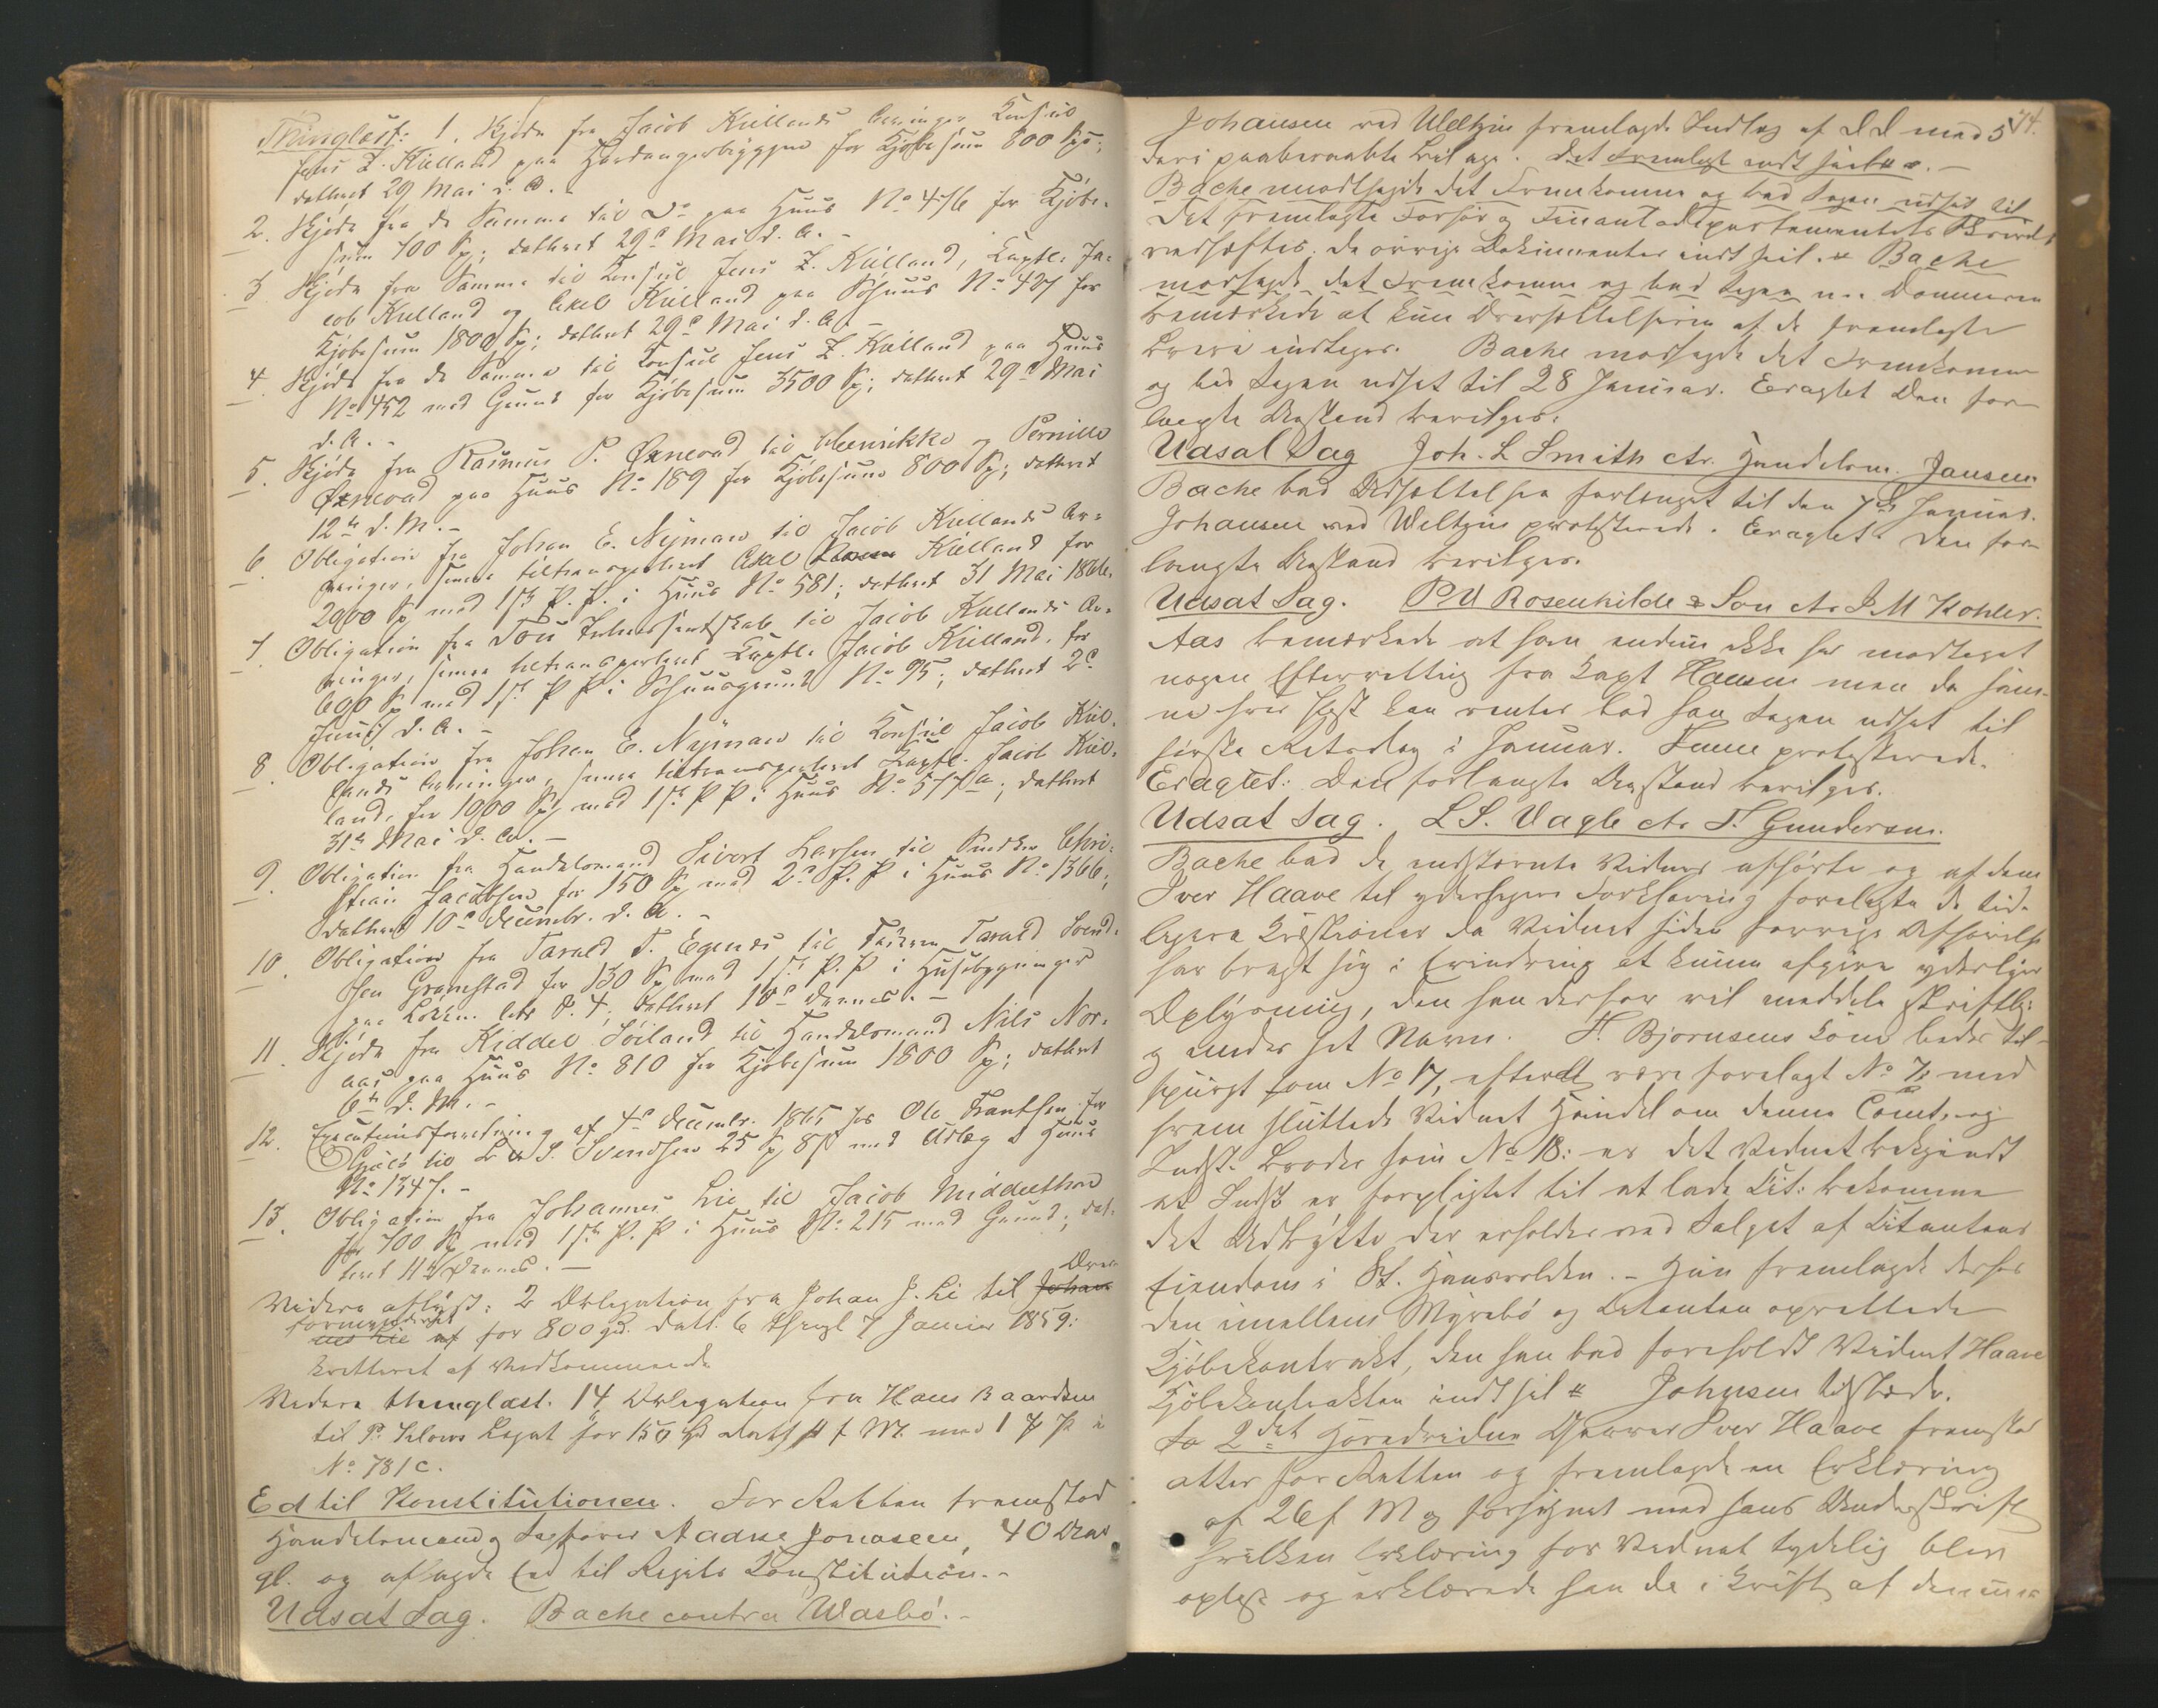 Thinglæst: 1. Skjøde fra Jacob Kiellands Arvinger Konsul
Jens Z. Kielland paa Hardangerbryggen for Kjøbesum 800 Spd;
datteret 29 Mai d. A. -
2. Skjøde fra de Samme til Do paa Huus No 476 for Kjøbe-
sum 700 Sp; datteret 29d Mai d. A. -
3 Skjøde fra Samme til Konsul Jens Z. Kielland, Captl: Ja-
cob Kielland og Axel Kielland paa Søhuus No 427 for
Kjøbesum 1800 Sp; datteret 29d Mai d. A. -
4. Skjøde fra de Samme til Konsul Jens Z. Kielland paa Huus
No 452 med Grund for Kjøbesum 3500 Sp; datteret 29d Mai
d. A. -
5. Skjøde fra Rasmus P. Øxnevad til Henrikke og Pernille
Øxnevad paa Huus No 189 for Kjøbesum 800 Sp; datteret
12te d. M. -
6. Obligation fra Johan E. Nyman til Jacob Kiellands Ar-
vinger, senere tiltransporteret Axel Kielland for
2000 Sp med 1ste P. P. i Huus No 581; datteret 31 Mai 1866.
7. Obligation fra Tou Interessentskab til Jacob Kiellands Ar-
vinger, senere tiltransporteret Captl: Jacob Kielland, for
600 Sp med 1st P P i Søhuusgrund No 95; datteret 2d
Juni d. A. -
8. Obligation fra Johan E. Nyman til Konsul Jacob Kiel-
lands Arvinger, senere tiltransporteret Captl. Jacob Kiel-
land, for 1000 Sp med 1ste P P i Huus No 577a; datteret
31te Mai d. A. -
9. Obligation fra Handelsmand Sivert Larsen til Snedker Chri-
stian Jacobsen for 150 Sp med 2d P. P i Huus No 1366;
datteret 10d Decembr. d. A. -
10. Obligation fra Tarald T. Egenes til Tarald Svend-
sen Gramstad for 130 Sp med 1ste P. P i Husebygninger
paa Løkken litr P. 4; datteret 10d Dennes. -
11. Skjøde fra Kiddel Søiland til Handelsmand Nils Nor-
aas paa Huus No 810 for Kjøbesum 1800 Sp; datteret
6te d. M. -
12. Executionsforretning af 4d Decembr. 1865 hos Ole Frantsen for
Gjæld til L S. Svendsen 25 Sp 8 s med Udlæg i Huus
No 1347. -
13. Obligation fra Johannes Lie til Jacob Middelthon
for 700 Sp med 1ste P. P i Huus No 215 med Grund; dat-
teret 11te Dennes. -
Videre aflyst: 2 Obligation fra Johan J. Lie til Johan Over
formynderiet for 800 Spd. datt. 6 thingl 7 Januar 1859:
kvitteret af Vedkommende
Videre thinglæst. 14 Obligation fra Hans Baardsen
til P. Legat for 150 Spd datt f M. med 1 P. P i
No 781c.
Ed til Konstitutionen. For Retten fremstod
Handelsmand og Sagfører Aadne Jonassen, 40 Aar
gl. og aflagde Ed til Rigets Constitution. -
Udsat Sag. Bache contra Wasbø. -
74.
Johansen ved Weltzin fremlagde Indlæg af D D med 5
deri paaberaabte Bilage. Det Fremlagte indt hertil. -
Bache modsagde det Fremkomne og bad Sagen udsat til
Det fremlagte Forhør og Finantsdepartementets Skrivelse
vedhæftes; de øvrige Dokumenter indt hert. Bache
modsagde det Fremkomne og bad Sagen u.. Dommeren
bemærkede at kun Oversættelserne af de fremlagte
Breve indtages. Bache modsagde det Fremkomne
og bad Sagen udsat til 28 Januar. Eragtet Den for-
langte Anstand bevilges.
Udsat Sag Joh. L Smith ctr. Handelsm. Jansen
Bache bad Udsættelse forlænget til den 7de Januar.
Johansen ved Weltzin protesterede. Eragtet. Den for-
langte Anstand bevilges.
Udsat Sag. P V Rosenkilde & Søn ctr J. M Kohler.
Aas bemærkede at han endnu ikke har modtaget
nogen Efterretning fra Capt Hansen men da han
nu hver Post kan ventes bad han Sagen udsat til
første Retsdag i Januar. Tuue protesterede.
Eragtet: Den forlangte Anstand bevilges.
Udsat Sag. L S. Vagle ctr T. Gundersen.
Bache bad de indstævnte Vidner afhørte og af dem
Iver Haave til yderligere Forklaring forelagte de tid-
ligere Qvæstioner da Vidnet siden forrige Afhørelse
har bragt sig i Erindring at kunne afgive yderligere
Oplysning, den han derfor vil meddele skriftlig
og under sit Navn. T. Bjørnsens Kone bedes til-
spurgt som No 17, efterat være forelagt No 7: med
hvem sluttede Vidnet Handel om denne Tomt, og
Indst. Broder som No 18: er det Vidnet bekjendt
at Indst er forpligtet til at lade Cit: bekomme
det Udbytte der erholdes ved Salget af Citantens
Eiendom i St. Hansvolden. - Han fremlagde derhos
den imellem Myrebø og Citanten oprettede
Kjøbekontrakt, den han bad foreholdt Vidnet Haave
Kjøbekontrakten indt hert. Johnsen tilstede.
Som 2det Hovedvidne Iver Haave fremstod
atter for Retten og fremlagde en Erklæring
af 26 f M og forsynet med hans Underskrift
hvilken Erklæring for Vidnet tydelig blev
oplæst og erklærede han da i Kraft af den